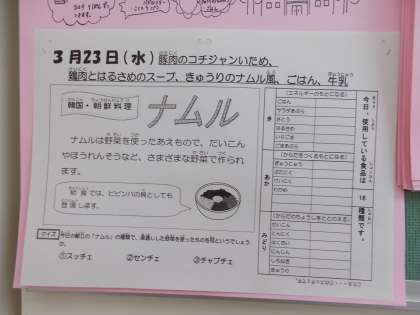 3月23日(水)豚肉のコチジャンいため、
鶏肉とはるさめのスープ、きゅうりのナムル風、ごはん、牛乳
韓国・朝鮮料理
ナムル
ナムルは野菜を使ったあえもので、だいこん
やほうれんそうなど、さまざまな野菜で作られ
ます。
給食では、ビビンバの具としても
登場します。
クイズ
今日の献立の「ナムル」の種類で、果物した野菜を使ったものを何というでしょう
か。
①スッチェ ②センチェ ③チャプチェ
今日、使用している食品は 18 種類です。
き
(エネルギーのもとになる)
ごはん
サラダあぶら
さとう
はるさめ
いりごま
ごまあぶら
あか
(からだをつくるもとになる)
ぎゅうにゅう
ぶたにく
けいにく
わかめ
みどり
(からだのちょうしをととのえる)
だいこん
にんにく
はくさい
にんじん
しろねぎ
きゅうり